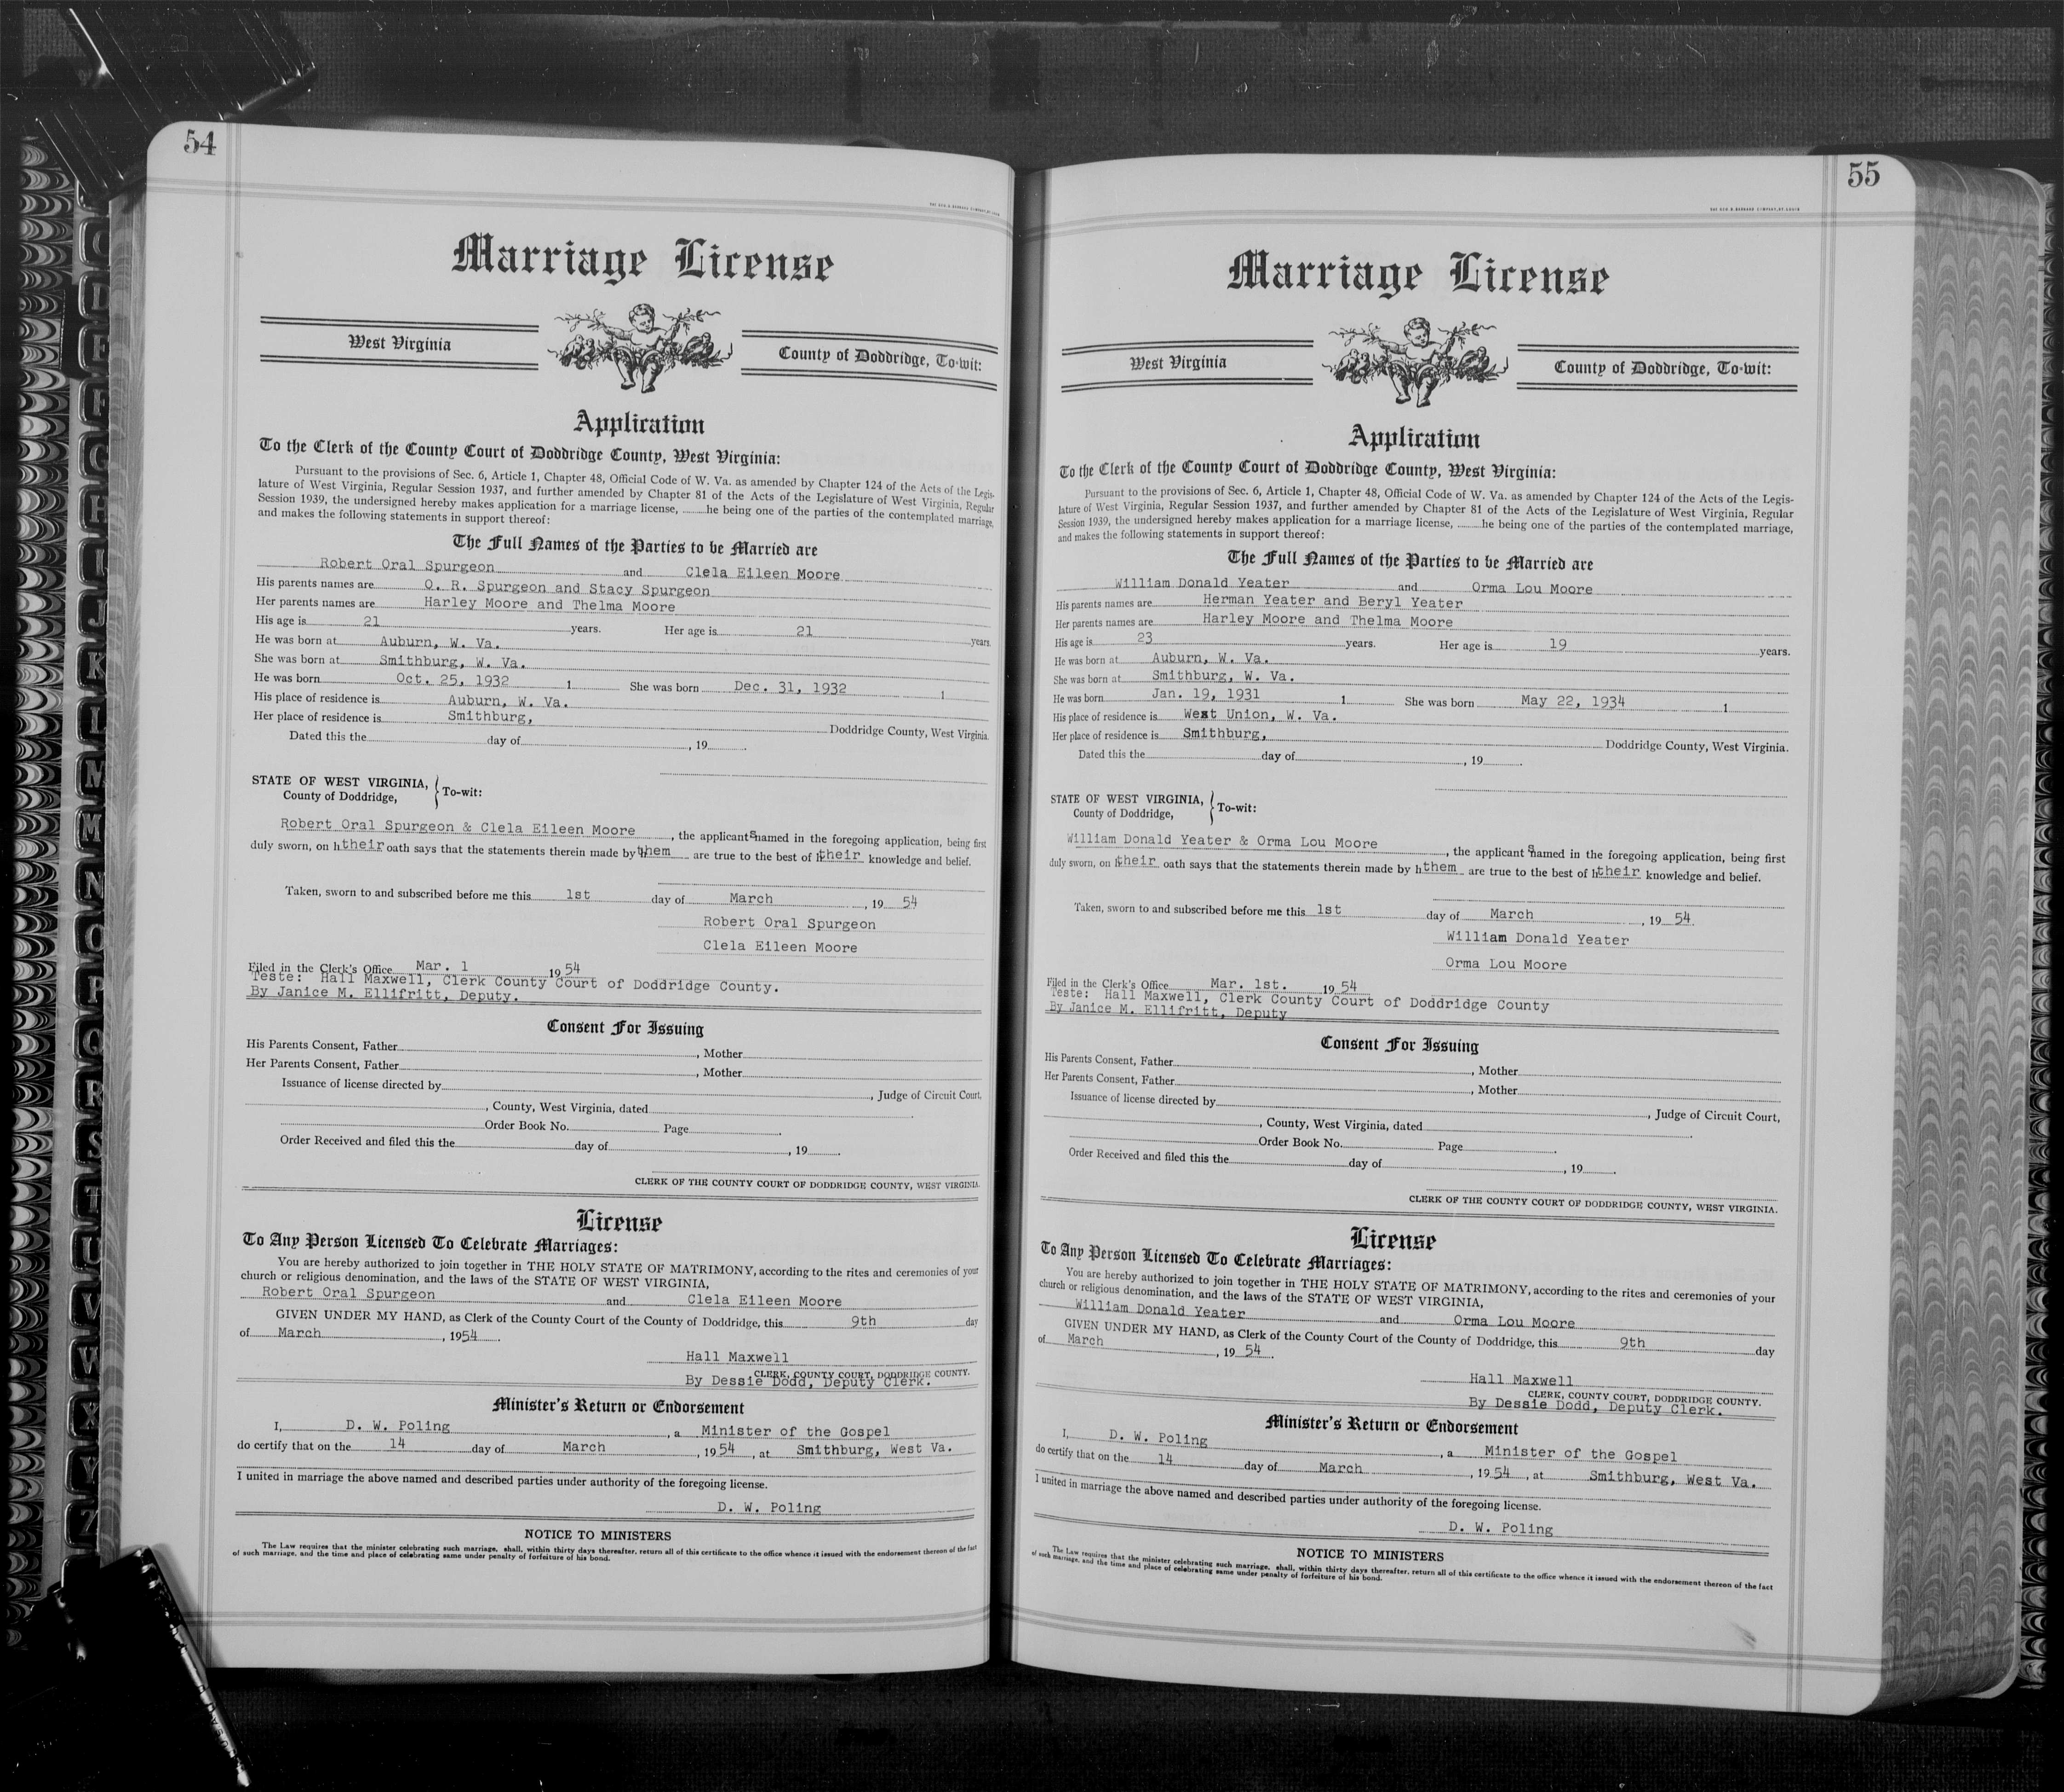 54
THE GEO. D. BARNARD COMPANY, ST. LOUIS
Marriage License
West Virginia
County of Doddridge, To-wit:
Application
To the Clerk of the County Court of Doddridge County, West Virginia:
Pursuant to the provisions of Sec. 6, Article 1, Chapter 48, Official Code of W. Va. as amended by Chapter 124 of the Acts of the Legis-
lature of West Virginia, Regular Session 1937, and further amended by Chapter 81 of the Acts of the Legislature of West Virginia, Regular
Session 1939, the undersigned hereby makes application for a marriage license, ........he being one of the parties of the contemplated marriage,
and makes the following statements in support thereof:
The Full Names of the Parties to be Married are
Robert Oral Spurgeon and Clela Eileen Moore
His parents names are O. R. Spurgeon and Stacy Spurgeon
Her parents names are Harley Moore and Thelma Moore
His age is 21 years. Her age is 21 years.
He was born at Auburn, W. Va.
She was born at Smithburg, W. Va.
He was born Oct. 25, 1932 1 She was born Dec. 31, 1932 1
His place of residence is Auburn, W. Va.
Her place of residence is Smithburg, Doddridge County, West Virginia.
Dated this the day of , 19 .
STATE OF WEST VIRGINIA,
County of Doddridge, To-wit:
Robert Oral Spurgeon & Clela Eileen Moore , the applicants named in the foregoing application, being first
duly sworn, on h their oath says that the statements therein made by h them are true to the best of h their knowledge and belief.
Taken, sworn to and subscribed before me this 1st day of March , 19 54
Robert Oral Spurgeon
Clela Eileen Moore
Filed in the Clerk's Office Mar. 1 19 54
Teste: Hall Maxwell, Clerk County Court of Doddridge County.
By Janice M. Ellifritt, Deputy.
Consent For Issuing
His Parents Consent, Father , Mother
Her Parents Consent, Father , Mother
Issuance of license directed by , Judge of Circuit Court,
, County, West Virginia, dated .
Order Book No. Page .
Order Received and filed this the day of , 19 .
CLERK OF THE COUNTY COURT OF DODDRIDGE COUNTY, WEST VIRGINIA.
License
To Any Person Licensed To Celebrate Marriages:
You are hereby authorized to join together in THE HOLY STATE OF MATRIMONY, according to the rites and ceremonies of your
church or religious denomination, and the laws of the STATE OF WEST VIRGINIA,
Robert Oral Spurgeon and Clela Eileen Moore
GIVEN UNDER MY HAND, as Clerk of the County Court of the County of Doddridge, this 9th day
of March , 1954 .
Hall Maxwell
CLERK, COUNTY COURT, DODDRIDGE COUNTY.
By Dessie Dodd, Deputy Clerk.
Minister's Return or Endorsement
I, D. W. Poling , a Minister of the Gospel
do certify that on the 14 day of March , 1954 , at Smithburg, West Va.
I united in marriage the above named and described parties under authority of the foregoing license.
D. W. Poling
NOTICE TO MINISTERS
The Law requires that the minister celebrating such marriage, shall, within thirty days thereafter, return all of this certificate to the office whence it issued with the endorsement thereon of the fact
of such marriage, and the time and place of celebrating same under penalty of forfeiture of his bond.
55
THE GEO. D. BARNARD COMPANY, ST. LOUIS
Marriage License
West Virginia
County of Doddridge, To-wit:
Application
To the Clerk of the County Court of Doddridge County, West Virginia:
Pursuant to the provisions of Sec. 6, Article 1, Chapter 48, Official Code of W. Va. as amended by Chapter 124 of the Acts of the Legis-
lature of West Virginia, Regular Session 1937, and further amended by Chapter 81 of the Acts of the Legislature of West Virginia, Regular
Session 1939, the undersigned hereby makes application for a marriage license, ........he being one of the parties of the contemplated marriage,
and makes the following statements in support thereof:
The Full Names of the Parties to be Married are
William Donald Yeater and Orma Lou Moore
His parents names are Herman Yeater and Beryl Yeater
Her parents names are Harley Moore and Thelma Moore
His age is 23 years. Her age is 19 years.
He was born at Auburn, W. Va.
She was born at Smithburg, W. Va.
He was born Jan. 19, 1931 1 She was born May 22, 1934 1
His place of residence is West Union, W. Va.
Her place of residence is Smithburg, Doddridge County, West Virginia.
Dated this the day of , 19 .
STATE OF WEST VIRGINIA,
County of Doddridge, To-wit:
William Donald Yeater & Orma Lou Moore , the applicants named in the foregoing application, being first
duly sworn, on h their oath says that the statements therein made by h them are true to the best of h their knowledge and belief.
Taken, sworn to and subscribed before me this 1st day of March , 19 54
William Donald Yeater
Orma Lou Moore
Filed in the Clerk's Office Mar. 1st. 19 54
Teste: Hall Maxwell, Clerk County Court of Doddridge County
By Janice M. Ellifritt, Deputy
Consent For Issuing
His Parents Consent, Father , Mother
Her Parents Consent, Father , Mother
Issuance of license directed by , Judge of Circuit Court,
, County, West Virginia, dated .
Order Book No. Page .
Order Received and filed this the day of , 19 .
CLERK OF THE COUNTY COURT OF DODDRIDGE COUNTY, WEST VIRGINIA.
License
To Any Person Licensed To Celebrate Marriages:
You are hereby authorized to join together in THE HOLY STATE OF MATRIMONY, according to the rites and ceremonies of your
church or religious denomination, and the laws of the STATE OF WEST VIRGINIA,
William Donald Yeater and Orma Lou Moore
GIVEN UNDER MY HAND, as Clerk of the County Court of the County of Doddridge, this 9th day
of March , 19 54 .
Hall Maxwell
CLERK, COUNTY COURT, DODDRIDGE COUNTY.
By Dessie Dodd, Deputy Clerk.
Minister's Return or Endorsement
I, D. W. Poling , a Minister of the Gospel
do certify that on the 14 day of March , 19 54 , at Smithburg, West Va.
I united in marriage the above named and described parties under authority of the foregoing license.
D. W. Poling
NOTICE TO MINISTERS
The Law requires that the minister celebrating such marriage, shall, within thirty days thereafter, return all of this certificate to the office whence it issued with the endorsement thereon of the fact
of such marriage, and the time and place of celebrating same under penalty of forfeiture of his bond.